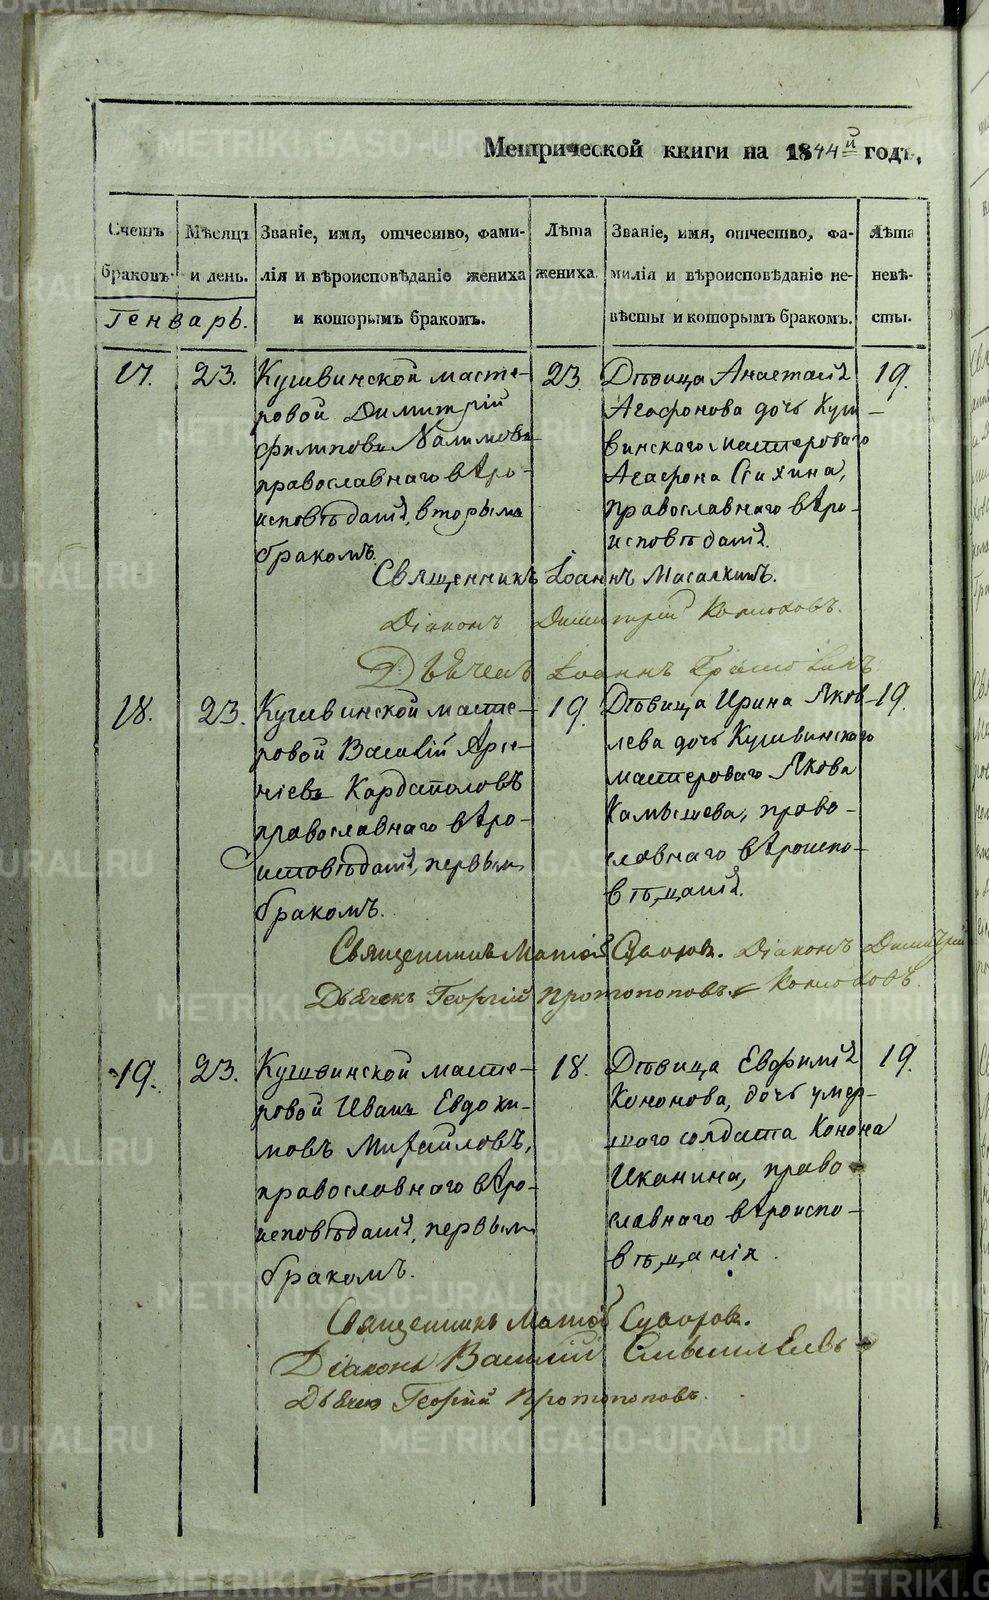 Метрической книги на 1844й годъ,
Счетъ браковъ.
Мѣсяцъ и день.
Званіе, имя, отчество, фами-
лія и вѣроисповѣданіе жениха
и которымъ бракомъ.
Лѣта жениха.
Званіе, имя, отчество, фа-
милія и вѣроисповѣданіе не-
вѣсты и которымъ бракомъ.
Лѣта невѣ-
сты.
Генварь.
17.
23.
Кушвинской масте-
ровой Димитрій
Филипповъ Налимовъ
православнаго вѣро-
исповѣданія, вторымъ
бракомъ.
23.
Дѣвица Анастасія
Агафонова дочь Куш-
винскаго мастероваго
Агафона Стихина,
православнаго вѣро-
исповѣданія.
19.
Священникъ Іоаннъ Масалкинъ.
Діаконъ Димитрій
Дьячекъ Іоаннъ
18.
23.
Кушвинской масте-
ровой Василій Арсе-
ніевъ Кардаполовъ
православнаго вѣро-
исповѣданія, первымъ
бракомъ.
19.
Дѣвица Ирина Яков-
лева дочь Кушвинскаго
мастероваго Якова
Камышева, право-
славнаго вѣроиспо-
вѣданія.
19.
Священникъ Матѳій Суворовъ. Діаконъ Димитрій
Дьячекъ Георгій Протопоповъ.
19.
23.
Кушвинской масте-
ровой Иванъ Евдоки-
мовъ Михайловъ,
православнаго вѣро-
исповѣданія, первымъ
бракомъ.
18.
Дѣвица Евфимія
Кононова, дочь умер-
шаго солдата Конона
Иканина, право-
славнаго вѣроиспо-
вѣданія.
19.
Священникъ Матѳій Суворовъ.
Діаконъ Василій
Дьячекъ Георгій Протопоповъ.
METRIKI.GASO-URAL.RU